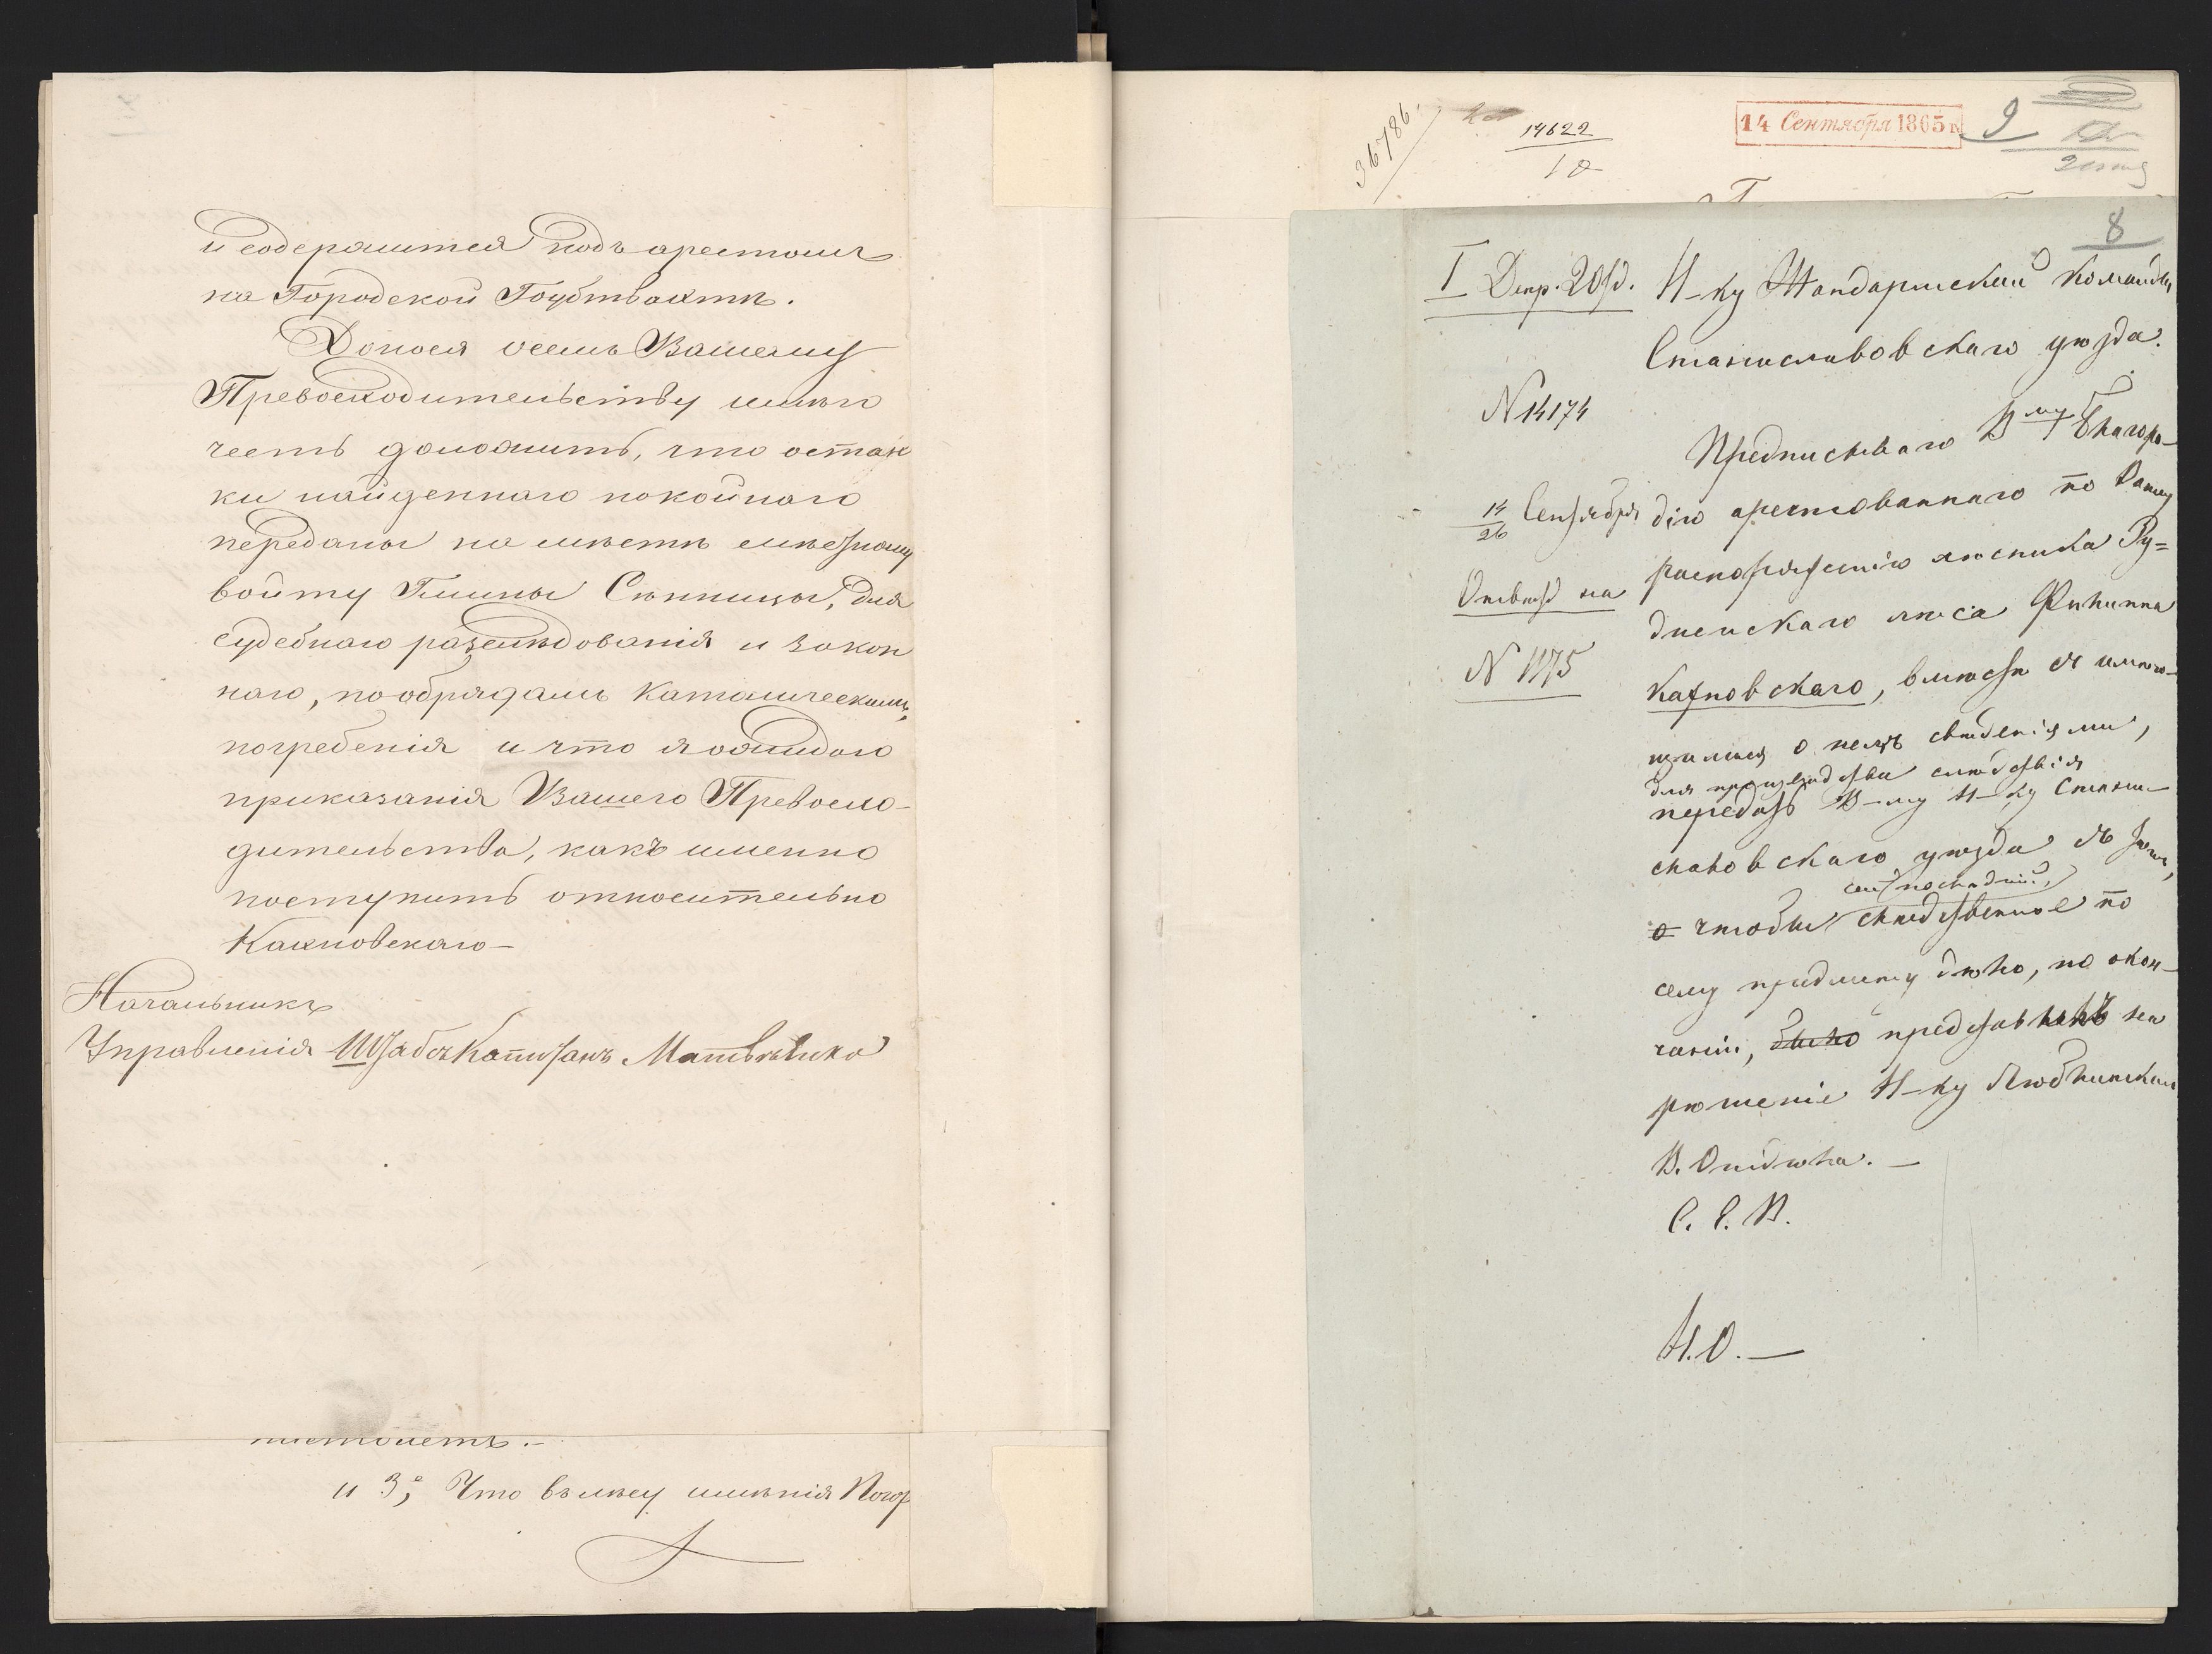 и содержится подъ арестомъ
на Городской Гоубтвахтѣ.
Донося осемъ Вашему
Превосходительству имѣю
честь доложить, что остан
ки найденнаго покойнаго
переданы на мѣстѣ мѣстному
войту Гмины Сѣнницы, для
судебнаго разслѣдованія и закон
наго, по обрядамъ Католическимъ,
погребенія и что я ожидаю
приказанія Вашего Превосхо-
дительства, какъ именно
поступить относительно
Кахновскаго—
Начальникъ
Управленія Штабсъ Капитанъ
пистолетъ.-
и 3е, Что въ лѣсу имѣнія Погор
36786.
14622
10
14 Сентября 1865 г.
9
8
I Отд. Н-ку Жандармской Команды
Станиславовскаго уѣзда.
N 14174
Предписываю В-му Благоро-
14/26 Сентября дію арестованнаго по Вашему
Отвѣтъ на распоряженію лѣсника Ру=
дненскаго лѣса Филиппа
N 1175
Кахновскаго, вмѣстѣ съ имѣю-
щимися о немъ свѣденіями,
для производства слѣдствія
передать В-му Н-ку Станис-
лавовскаго уѣзда съ тѣмъ,
сей послѣдній
чтобы слѣдственное по
сему предмету дѣло, по окон-
чаніи, было представилъ на
рѣшеніе Н-ку Люблинскаго
В. Отдѣла.—
С. Е. В.
Н.О.—